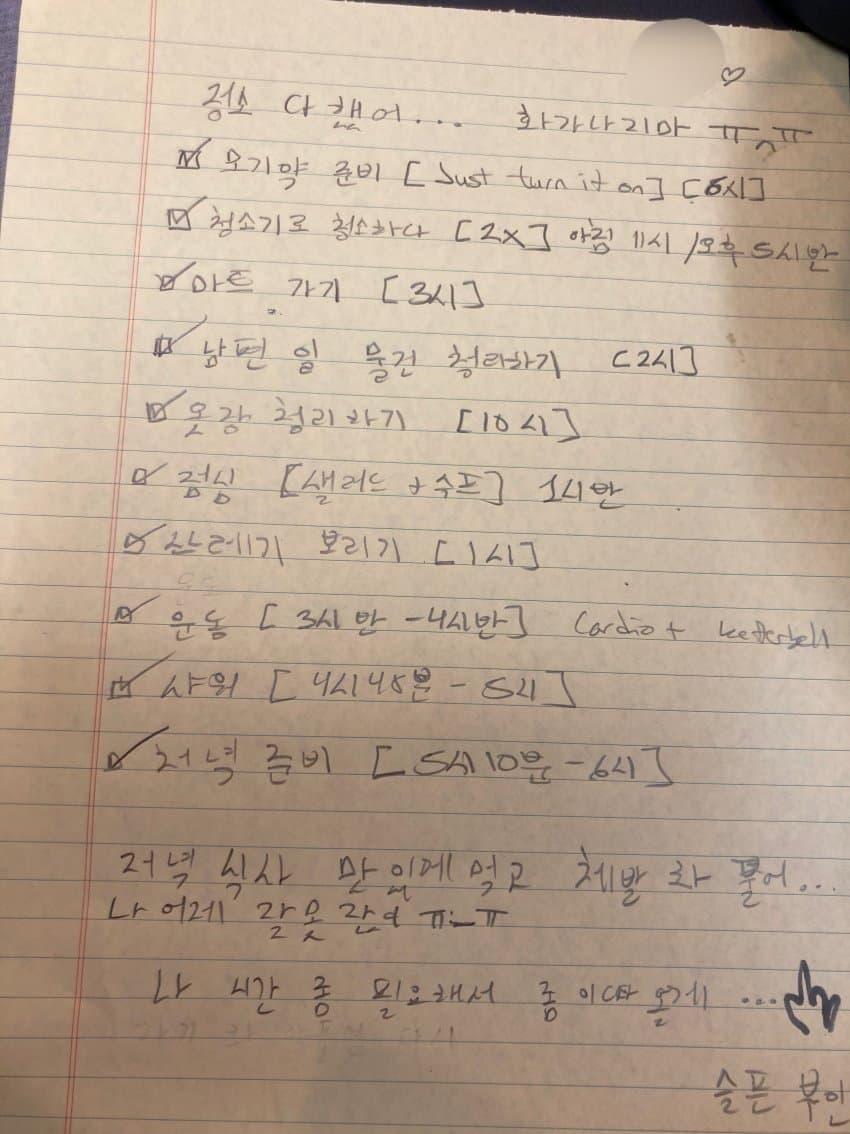 청소 다 했어... 화가나지마 ㅠㅅㅠ
모기약 준비 [Just turn it on] [6시]
청소기로 청소하다 [2x] 아침 11시 / 오후 5시반
마트 가기 [3시]
남편 일 물건 청리하기 [2시]
옷장 청리하기 [10시]
점심 [샐러드 + 수프] 1시반
쓰레기 보리기 [1시]
운동 [3시반 - 4시반] Cardio + kettlebell
샤워 [4시45분 - 5시]
저녁 준비 [5시10분 - 6시]
저녁 식사 만 있게 먹고 제발 화 풀어...
나 어제 잘못 같어 ㅠ-ㅠ
나 시간 좀 필요해서 좀 이따 올게 ...
슬픈 부인